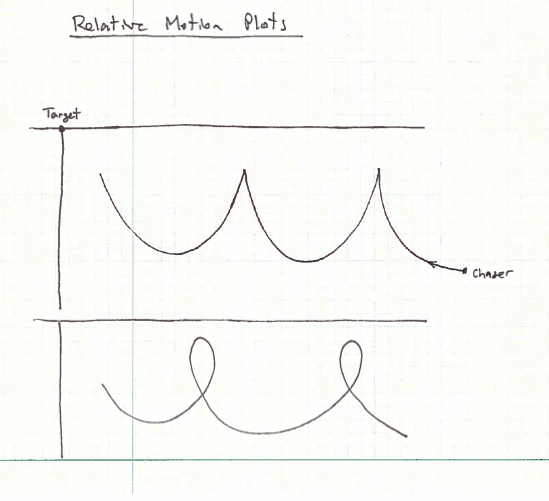 Relative Motion Plots
Target
Chaser